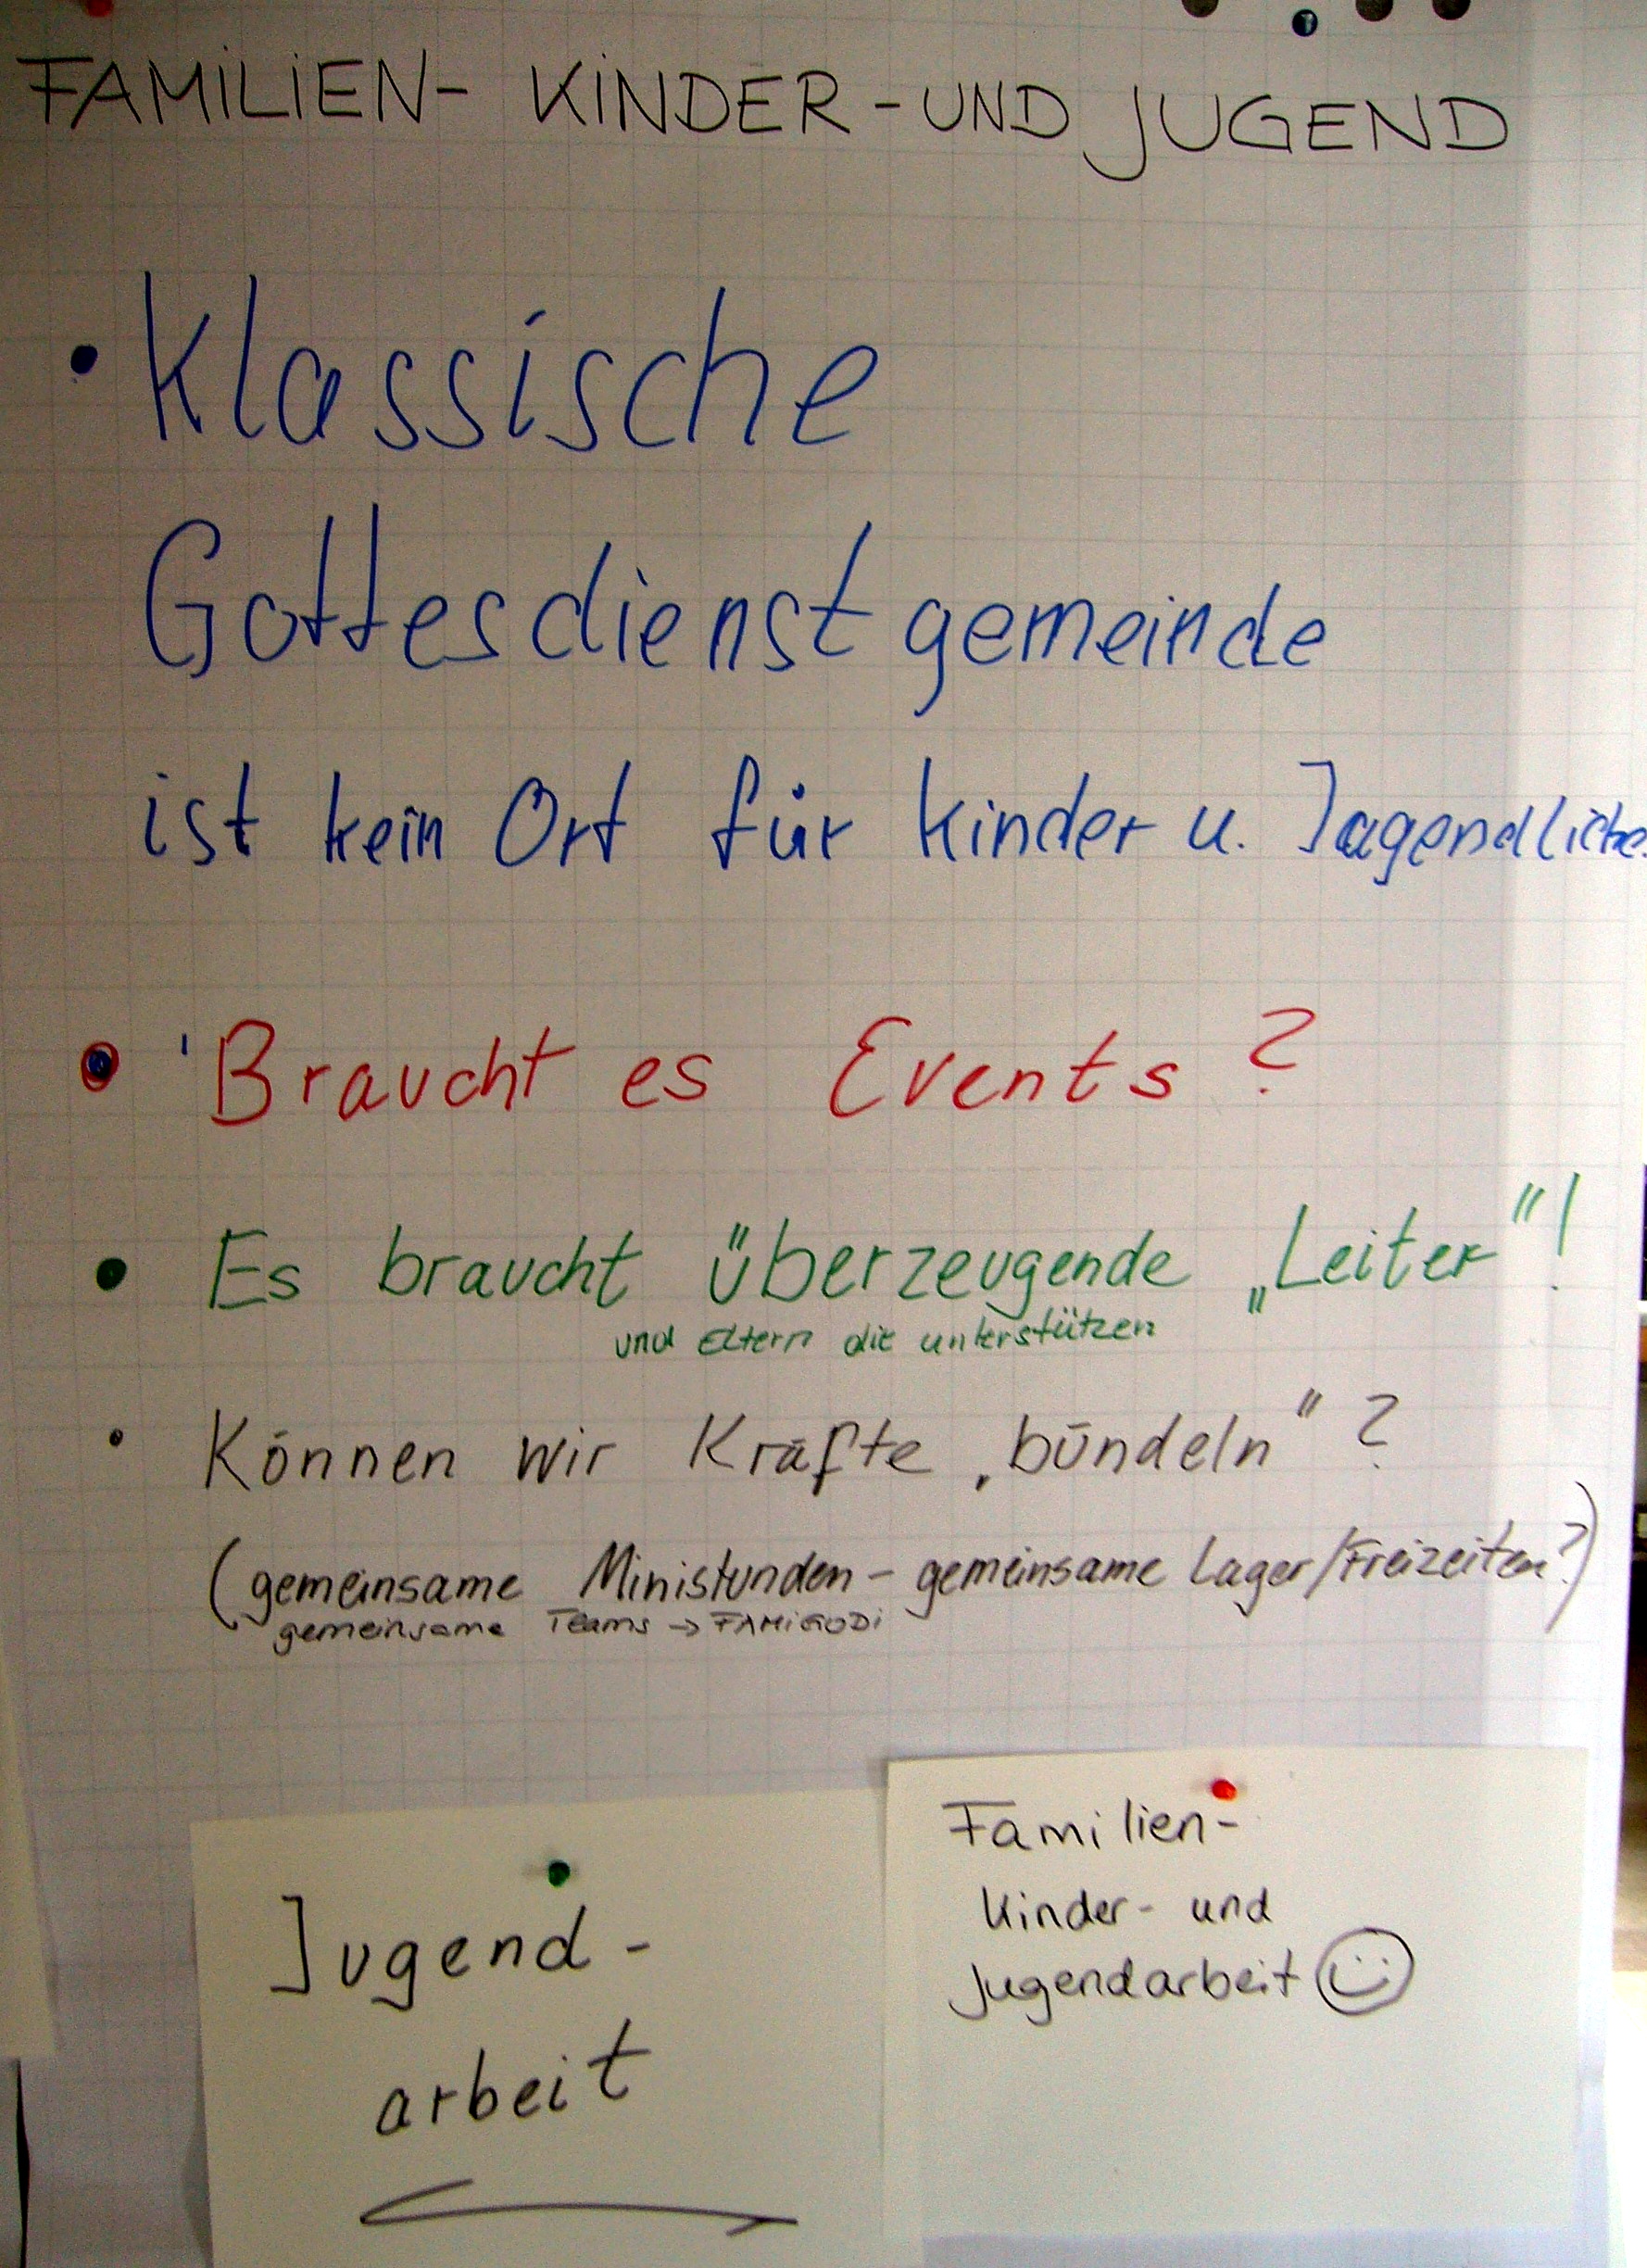 FAMILIEN- KINDER-UND JUGEND
• Klassische
Gottesdienstgemeinde
ist kein Ort für Kinder u. Jugendliche.
• Braucht es Events?
• Es braucht überzeugende „Leiter"!
und Eltern die unterstützen
• Können wir Kräfte „bündeln"?
(gemeinsame Ministunden - gemeinsame Lager/Freizeiten?)
gemeinsame Teams → FAMIGODI
Jugend-
arbeit
Familien-
Kinder- und
Jugendarbeit ☺